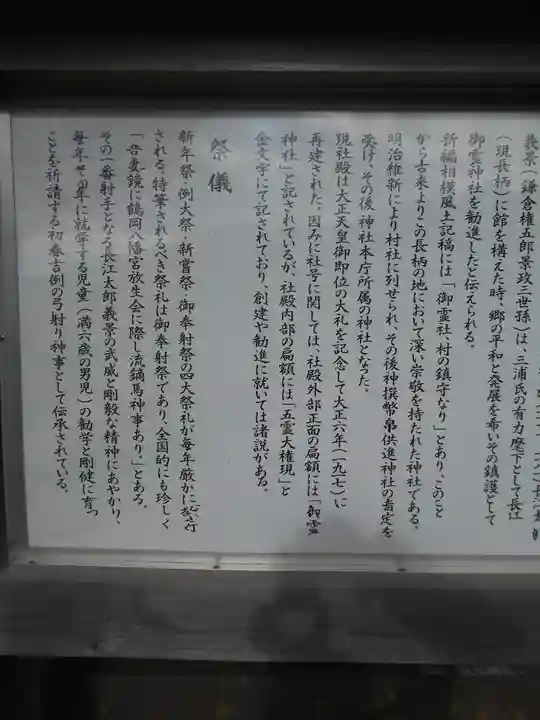 義景(鎌倉権五郎景政三世孫)は、三浦氏の有力麾下として長江
(現長柄)に館を構えた時、郷の平和と発展を希いその鎮護として
御霊神社を勧進したと伝えられる。
新編相模風土記稿には「御霊社、村の鎮守なり」とあり、このこと
から古来よりこの長柄の地において深い崇敬を持たれた神社である。
明治維新により村社に列せられ、その後神撰幣帛供進神社の指定を
受け、その後神社本庁所属の神社となった。
現社殿は大正天皇御即位の大礼を記念して大正六年(一九一七)に
再建された。因みに社号に関しては、社殿外部正面の扁額には「御霊
神社」と記されているが、社殿内部の扁額には「五霊大権現」と
金文字にて記されており、創建や勧進に就いては諸説がある。
祭儀
新年祭・例大祭・新嘗祭・御奉射祭の四大祭礼が毎年厳かに
される。特筆されるべき祭礼は御奉射祭であり、全国的にも珍しく
「吾妻鏡に鶴岡八幡宮放生会に際し流鏑馬神事あり。」とある。
その一番射手となる長江太郎義景の武威と剛毅な精神にあやかり、
毎年その年に就学する児童(満六歳の男児)の勧学と剛健に育つ
ことを祈請する初春吉例の弓射り神事として伝承されている。